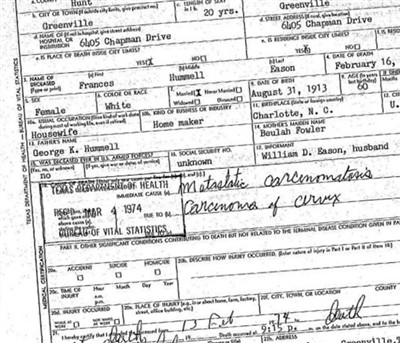 Hunt
b. CITY OR TOWN (If outside city limits, give precinct no.)
c. LENGTH OF STAY
Greenville
20 yrs.
Greenville
d. NAME OF (If not in hospital, give street address)
HOSPITAL OR
INSTITUTION
6405 Chapman Drive
d. STREET ADDRESS (If rural, give location)
6405 Chapman Drive
e. IS PLACE OF DEATH INSIDE CITY LIMITS?
YES NO
e. IS RESIDENCE INSIDE CITY LIMITS?
YES NO
3. NAME OF
DECEASED
(Type or print)
(a) First
(b) Middle
(c) Last
4. DATE OF DEATH
Frances
Hummell
Eason
February 16,
5. SEX
6. COLOR OR RACE
7. Married Never Married
Widowed Divorced
8. DATE OF BIRTH
9. AGE (In years
Female
White
August 31, 1913
60
10a. USUAL OCCUPATION (Give kind of work done
during most of working life, even if retired)
10b. KIND OF BUSINESS OR INDUSTRY
11. BIRTHPLACE (State or foreign country)
12.
Housewife
Home maker
Charlotte, N. C.
U.
13. FATHER'S NAME
14. MOTHER'S MAIDEN NAME
George K. Hummell
Beulah Fowler
15. WAS DECEASED EVER IN U.S. ARMED FORCES?
(Yes, no, or unknown)
16. SOCIAL SECURITY NO.
17. INFORMANT
no
unknown
William D. Eason, husband
TEXAS DEPARTMENT OF HEALTH
IMMEDIATE CAUSE (a)
Metastatic carcinomatosis
REC'D MAR 4 1974
DUE TO (b)
Carcinoma of cervix
BUREAU OF VITAL STATISTICS
PART II. OTHER SIGNIFICANT CONDITIONS CONTRIBUTING TO DEATH BUT NOT RELATED TO THE TERMINAL DISEASE CONDITION GIVEN IN
20a.
ACCIDENT SUICIDE HOMICIDE
20b. DESCRIBE HOW INJURY OCCURRED. (Enter nature of injury in Part I or Part II of item 18.)
20c. TIME OF
INJURY
Hour Month Day Year
a.m.
p.m.
20d. INJURY OCCURRED
20e. PLACE OF INJURY (e.g., in or about home, farm, factory,
street, office building, etc.)
20f. CITY, TOWN, OR LOCATION
COUNTY
21. I hereby certify that I attended the deceased from
death
13 Feb
74
death
Death occurred at 9:15 P. m. on the date stated above, and to the
22b. ADDRESS
TEXAS DEPARTMENT OF HEALTH — BUREAU OF VITAL STATISTICS
MEDICAL CERTIFICATION